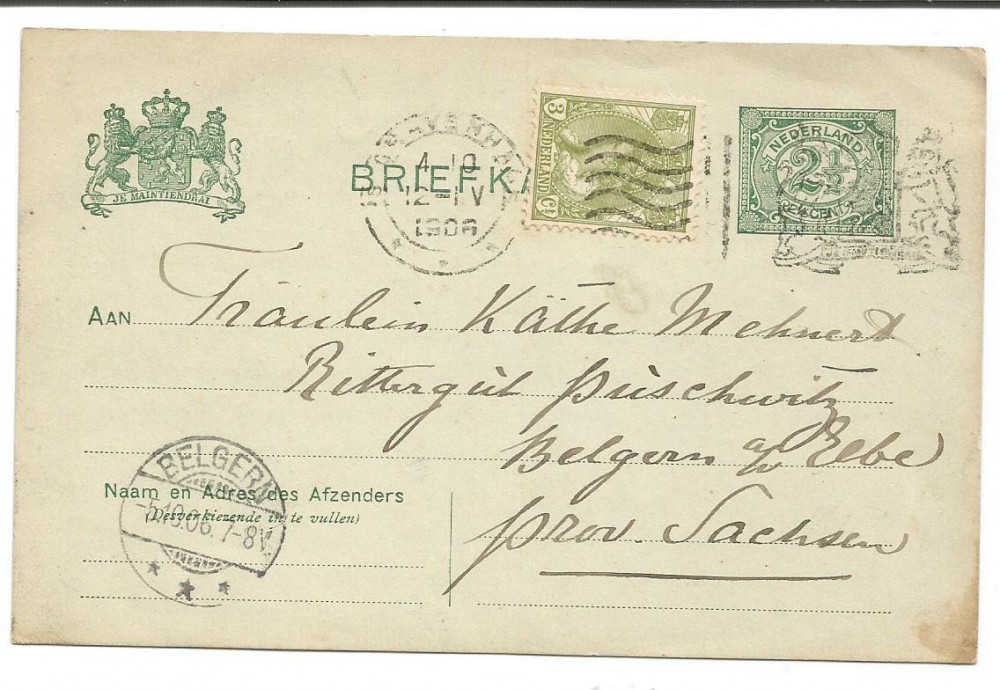 JE MAINTIENDRAI
BRIEFKA
4.10
12-1V
1906
3 NEDERLAND Ct
NEDERLAND
2½
2½ CENT
AAN Fräulein Käthe Mehnert
Rittergut Puschwitz
Belgern a/ Elbe
Prov. Sachsen
Naam en Adres des Afzenders
(Desverkiezende in te vullen)
BELGERN
-5.10.06. 7-8V.